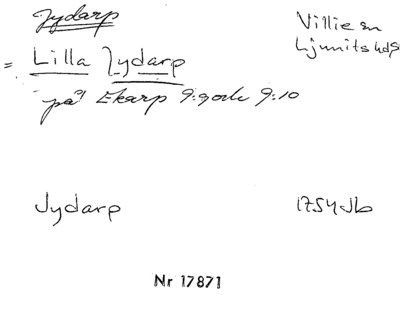 Jydarp
Villie sn
Ljunits hds
= Lilla Jydarp
på Ekarp 9: 9:10
Jydarp
1754 Jb
Nr 17871